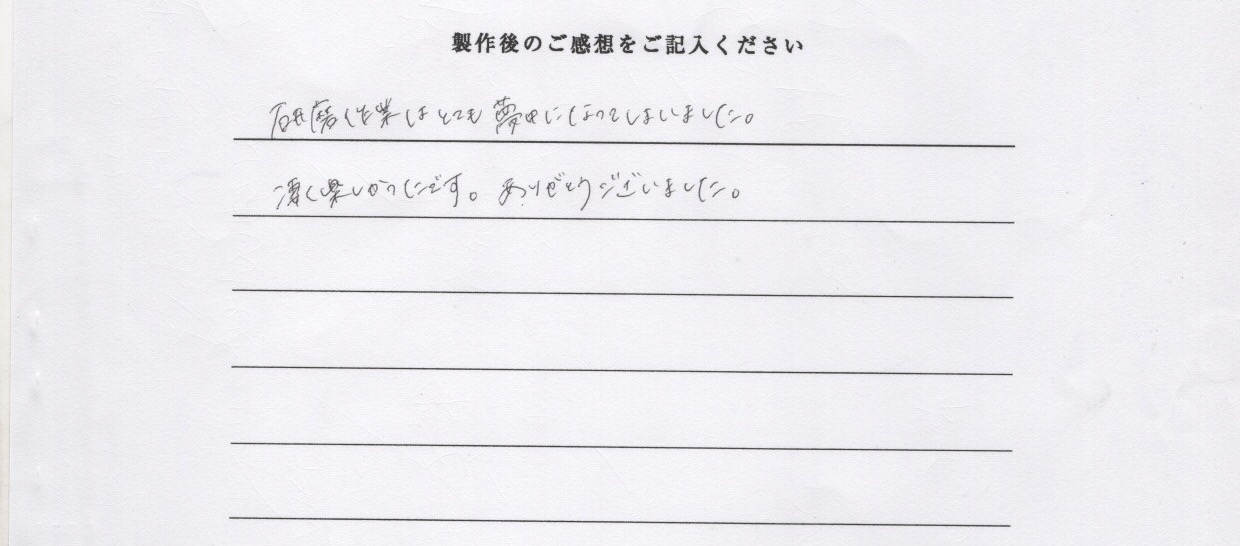 製作後のご感想をご記入ください
研磨作業はとても夢中になってしまいました。
凄く楽しかったです。ありがとうございました。